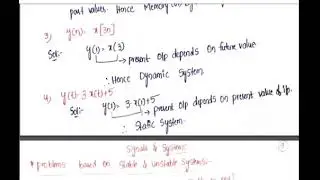 past values. Hence Memory
3) y(n) = x[3n]
Sol:- y(1) = x(3)
present o/p depends on future value
∴ Hence Dynamic System.
4) y(t) = 3 x(t)+5
Sol:- y(1) = 3 x(1)+5
present o/p depends on present value of i/p.
∴ Static System.
Signals & Systems
* problems based on Stable & unstable Systems:-